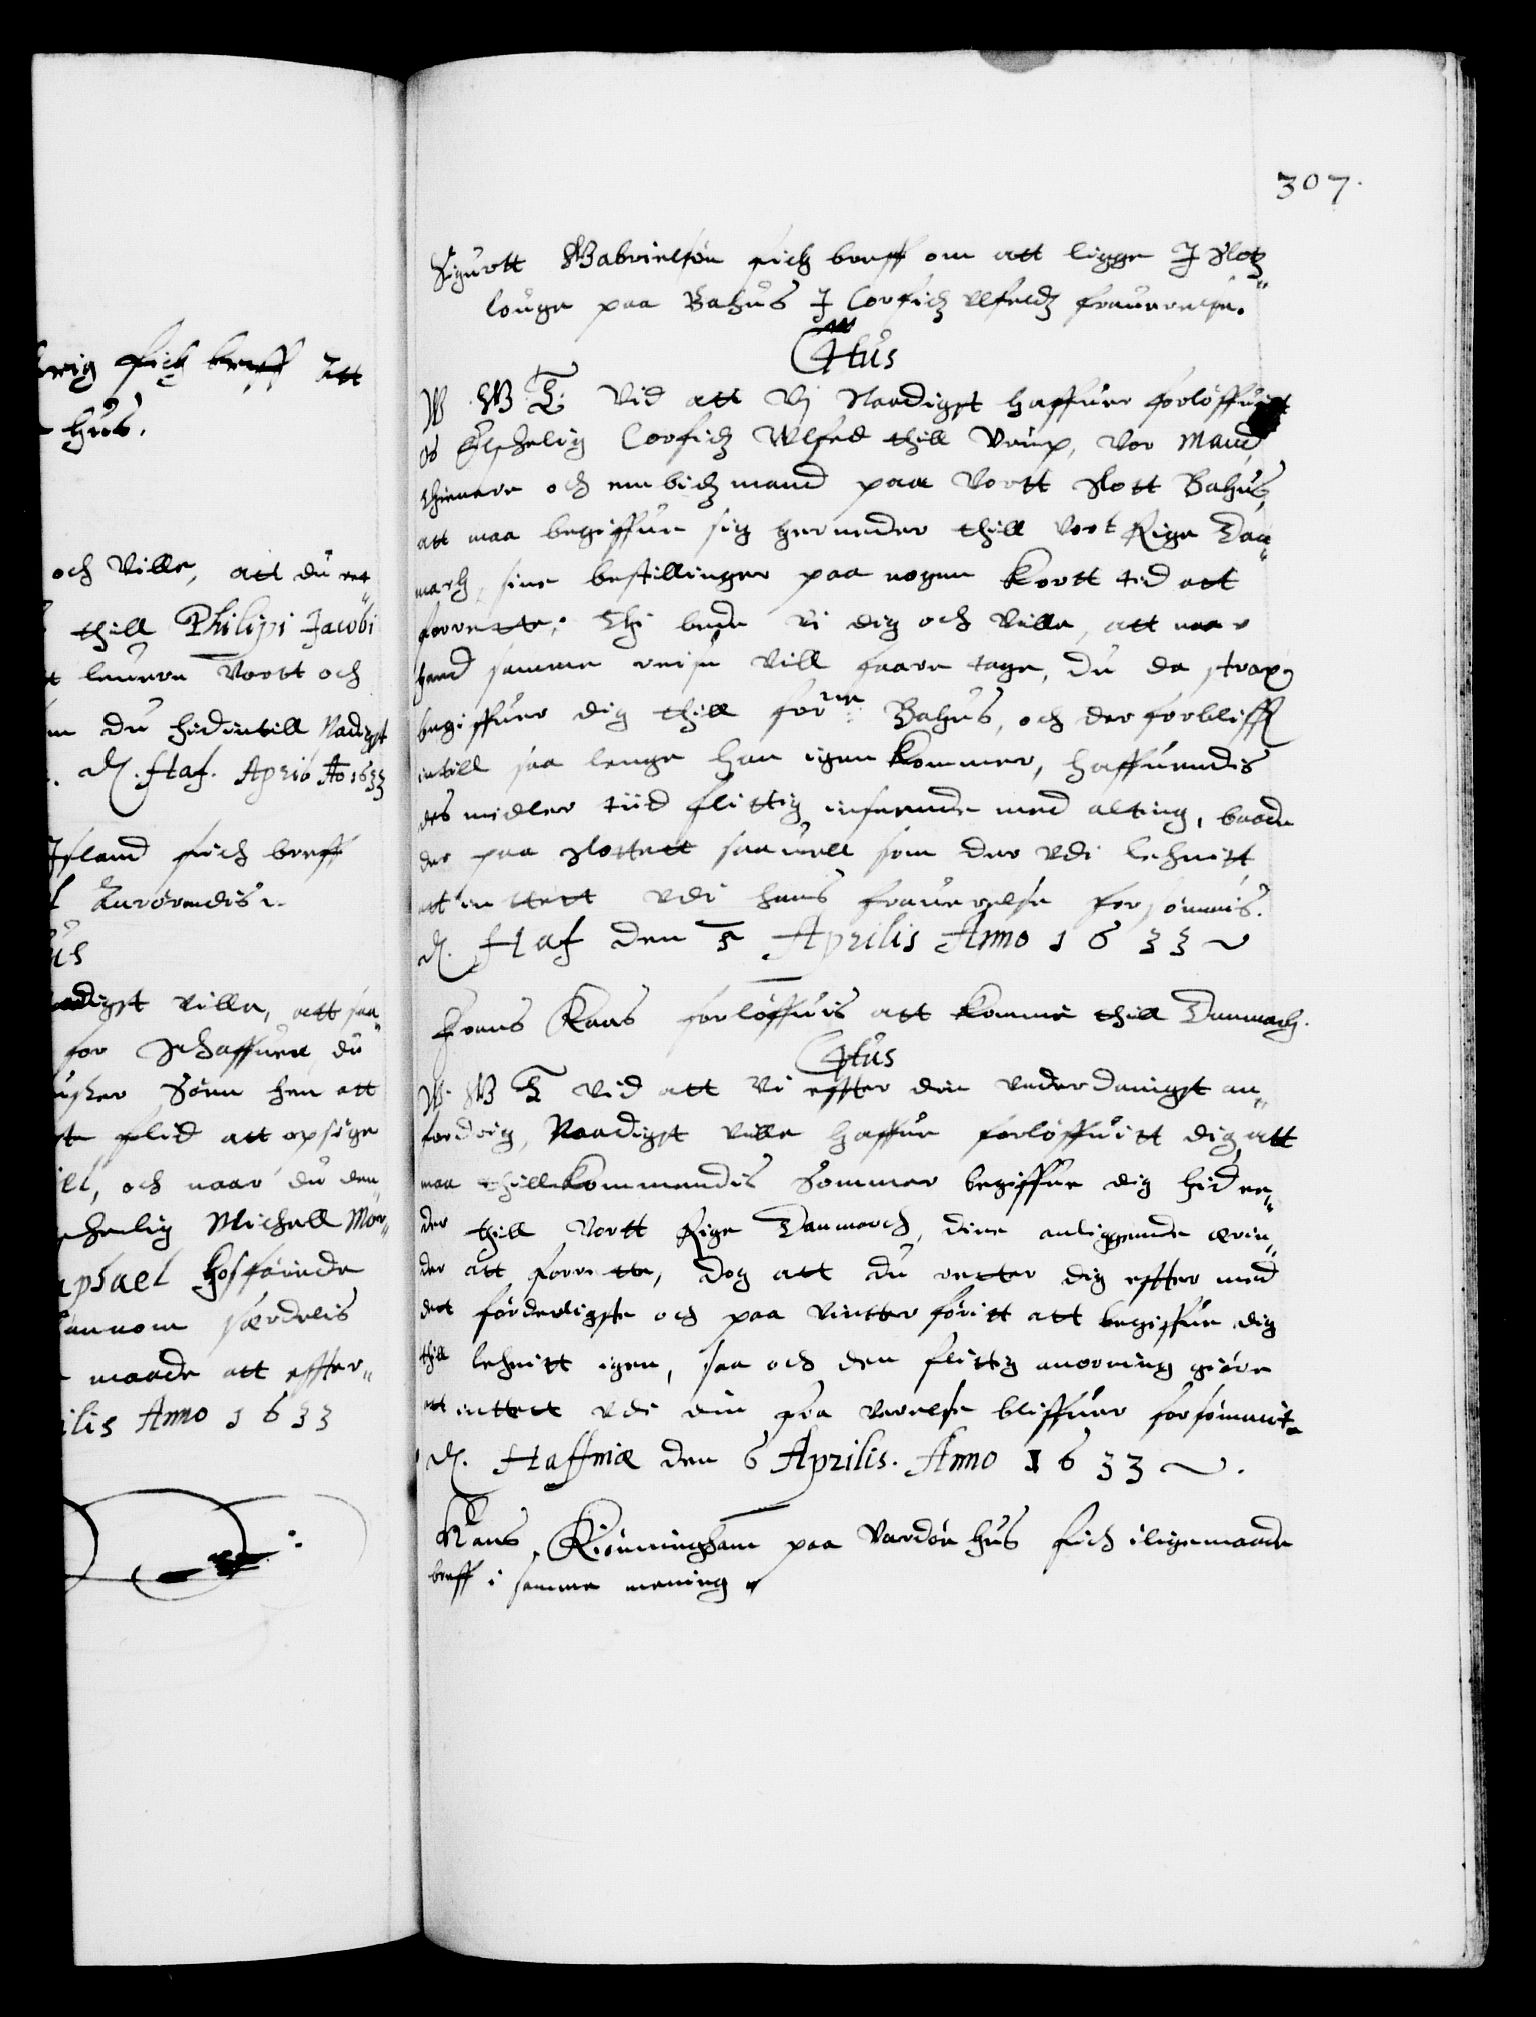 307.
Sigurtt Gabrielsøn fich breff om att ligge J Slotz„
louge paa Bahus J Corfidz Ulfeldz frauerelse.
C4tus
W. G. T. Vid att Vj Naadigst haffuer forløffuit
os Elschelig Corfidz Ulfed thill Urup, Vor Mand
thienere och embidzmand paa Vortt Slott Bahus,
att maa begiffue sig herneder thill Vort Rige Dan„
march, sine bestillinger paa nogen Kortt tid att
forrette, Thi bede Vi dig och Ville, att naar
hand samme reise Vill faare tage, du da strax
begiffuer dig thill forne Bahus, och der forbliff
intill saa lenge han igen Kommer, haffuendis
des midler tiid flittig inseende med alting, baade
der paa Slottett saauell som der Udi lehnitt
att inttett Udi hans frauerelse forsømmis.
D. Haf den 5 Aprilis Anno 1633
Frans Kaas forløffuis att komme thill Danmarch.
C4tus
W. G. T Vid att Vi effter din Underdanigst an„
fordrig, Naadigst Ville haffue forløffuitt dig, att
maa thillkommendis Sommer begiffue dig hid ne„
der thill Vortt Rige Danmarch, dine anliggende ærin„
der att forrette, dog att du retter dig effter med
det forderligste och paa Vintter føritt att begiffue dig
thill lehnitt igen, saa och den flittig anorning giøre
att inttett Udi din fra Verelse bliffuer forsømmit
D. Haffniæ den 6 Aprilis. Anno 1633
Hans Kiønningham paa Vardøe hus fich iligemaade
breff i samme mening
fich breff Att
hus.
och Ville, att du ret„
thill Philipi Jacobi
leuere Vortt och
du hidintill Nadigst
D. Haf. Apriis Ao 1633
Jsland fich breff
Anrørendis
digst Ville, att saa„
for Schaffuer du
Søen hen att
flid att opsige
och naar du den„
schelig Michell Mor„
phael Hosførinde
særdelis
maade att effter„
ilis Anno 1633